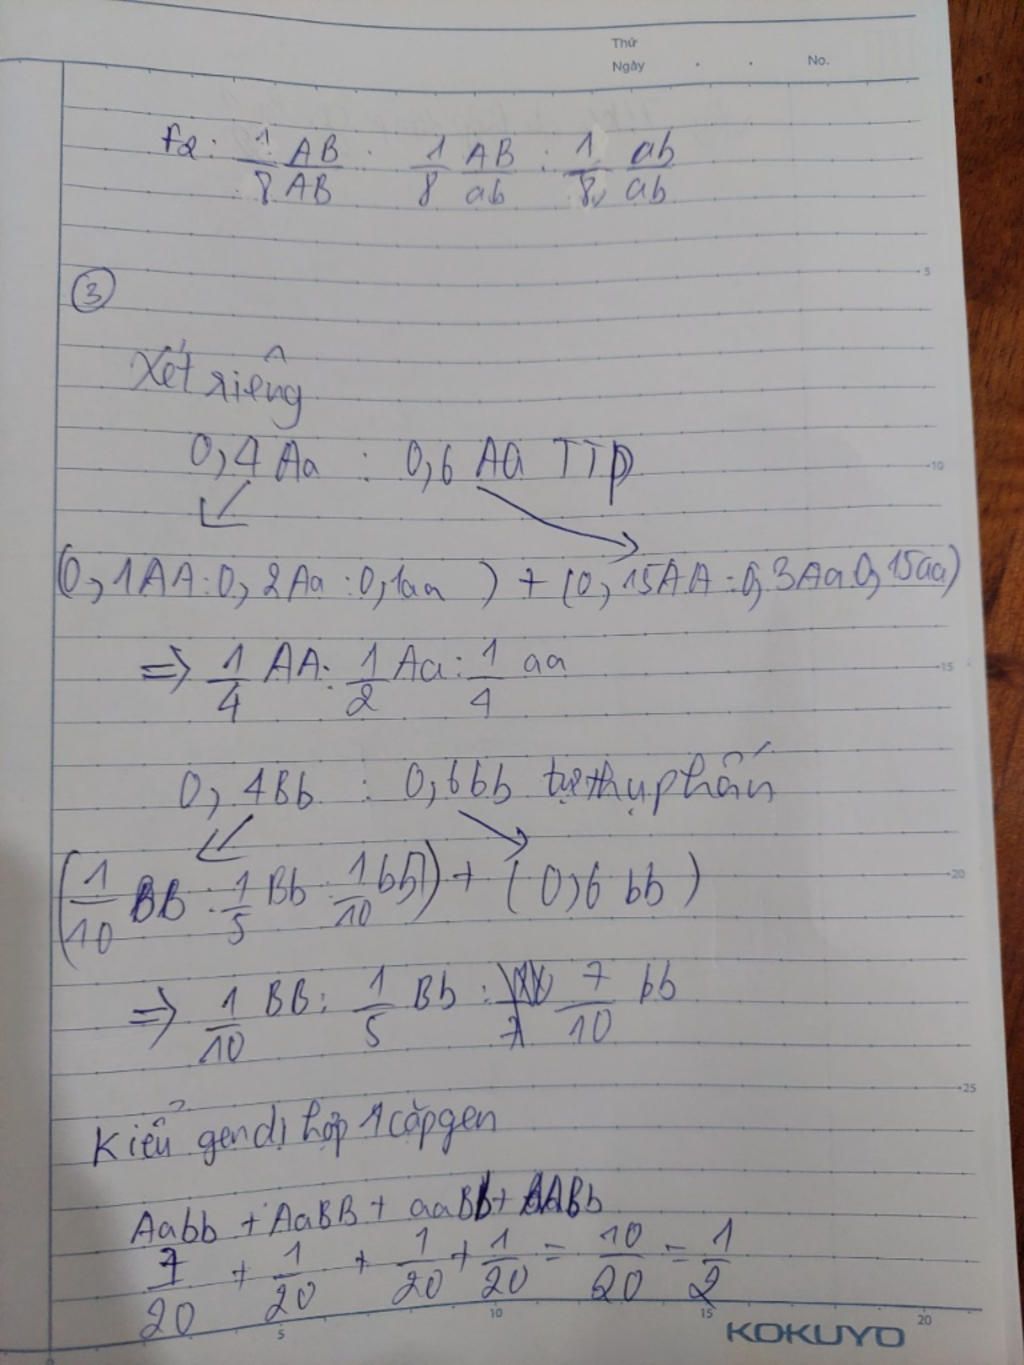 Thứ
Ngày . . No.
F2: 1/8 AB/AB : 1/8 AB/ab : 1/8 ab/ab
5
③
Xét riêng
0,4 Aa : 0,6 Aa TTP
10
(0,1AA:0,2Aa:0,1aa) + (0,15AA:0,3Aa 0,15aa)
=> 1/4 AA: 1/2 Aa: 1/4 aa
15
0,4Bb : 0,6bb tự thụ phấn
(1/10 BB : 1/5 Bb : 1/10 bb) + (0,6 bb)
20
=> 1/10 BB: 1/5 Bb : 7/10 bb
25
Kiểu gen dị hợp 1 cặp gen
Aabb + AaBB + aaBb + AABb
7/20 + 1/20 + 1/20 + 1/20 = 10/20 = 1/2
5 10 15 20
KOKUYO